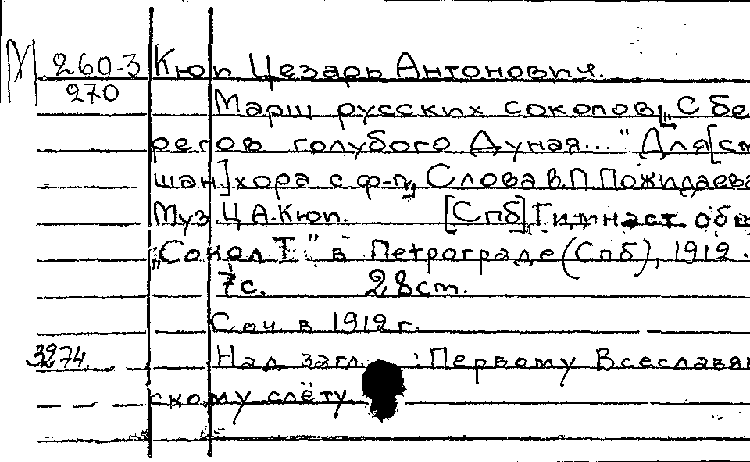 М 260-3 Кюи Цезарь Антонович.
270 Марш русских соколов „С бе
регов голубого Дуная..." Для [см
шан] хора с ф-п, Слова В.П. Пожидаева
Муз. Ц.А. Кюи. [Спб], Гимнаст. общ
„Сокол I" в Петрограде (Спб), 1912.
7с. 28ст.
Соч. в 1912 г.
3974 Над загл. : Первому Всеславян
скому слёту